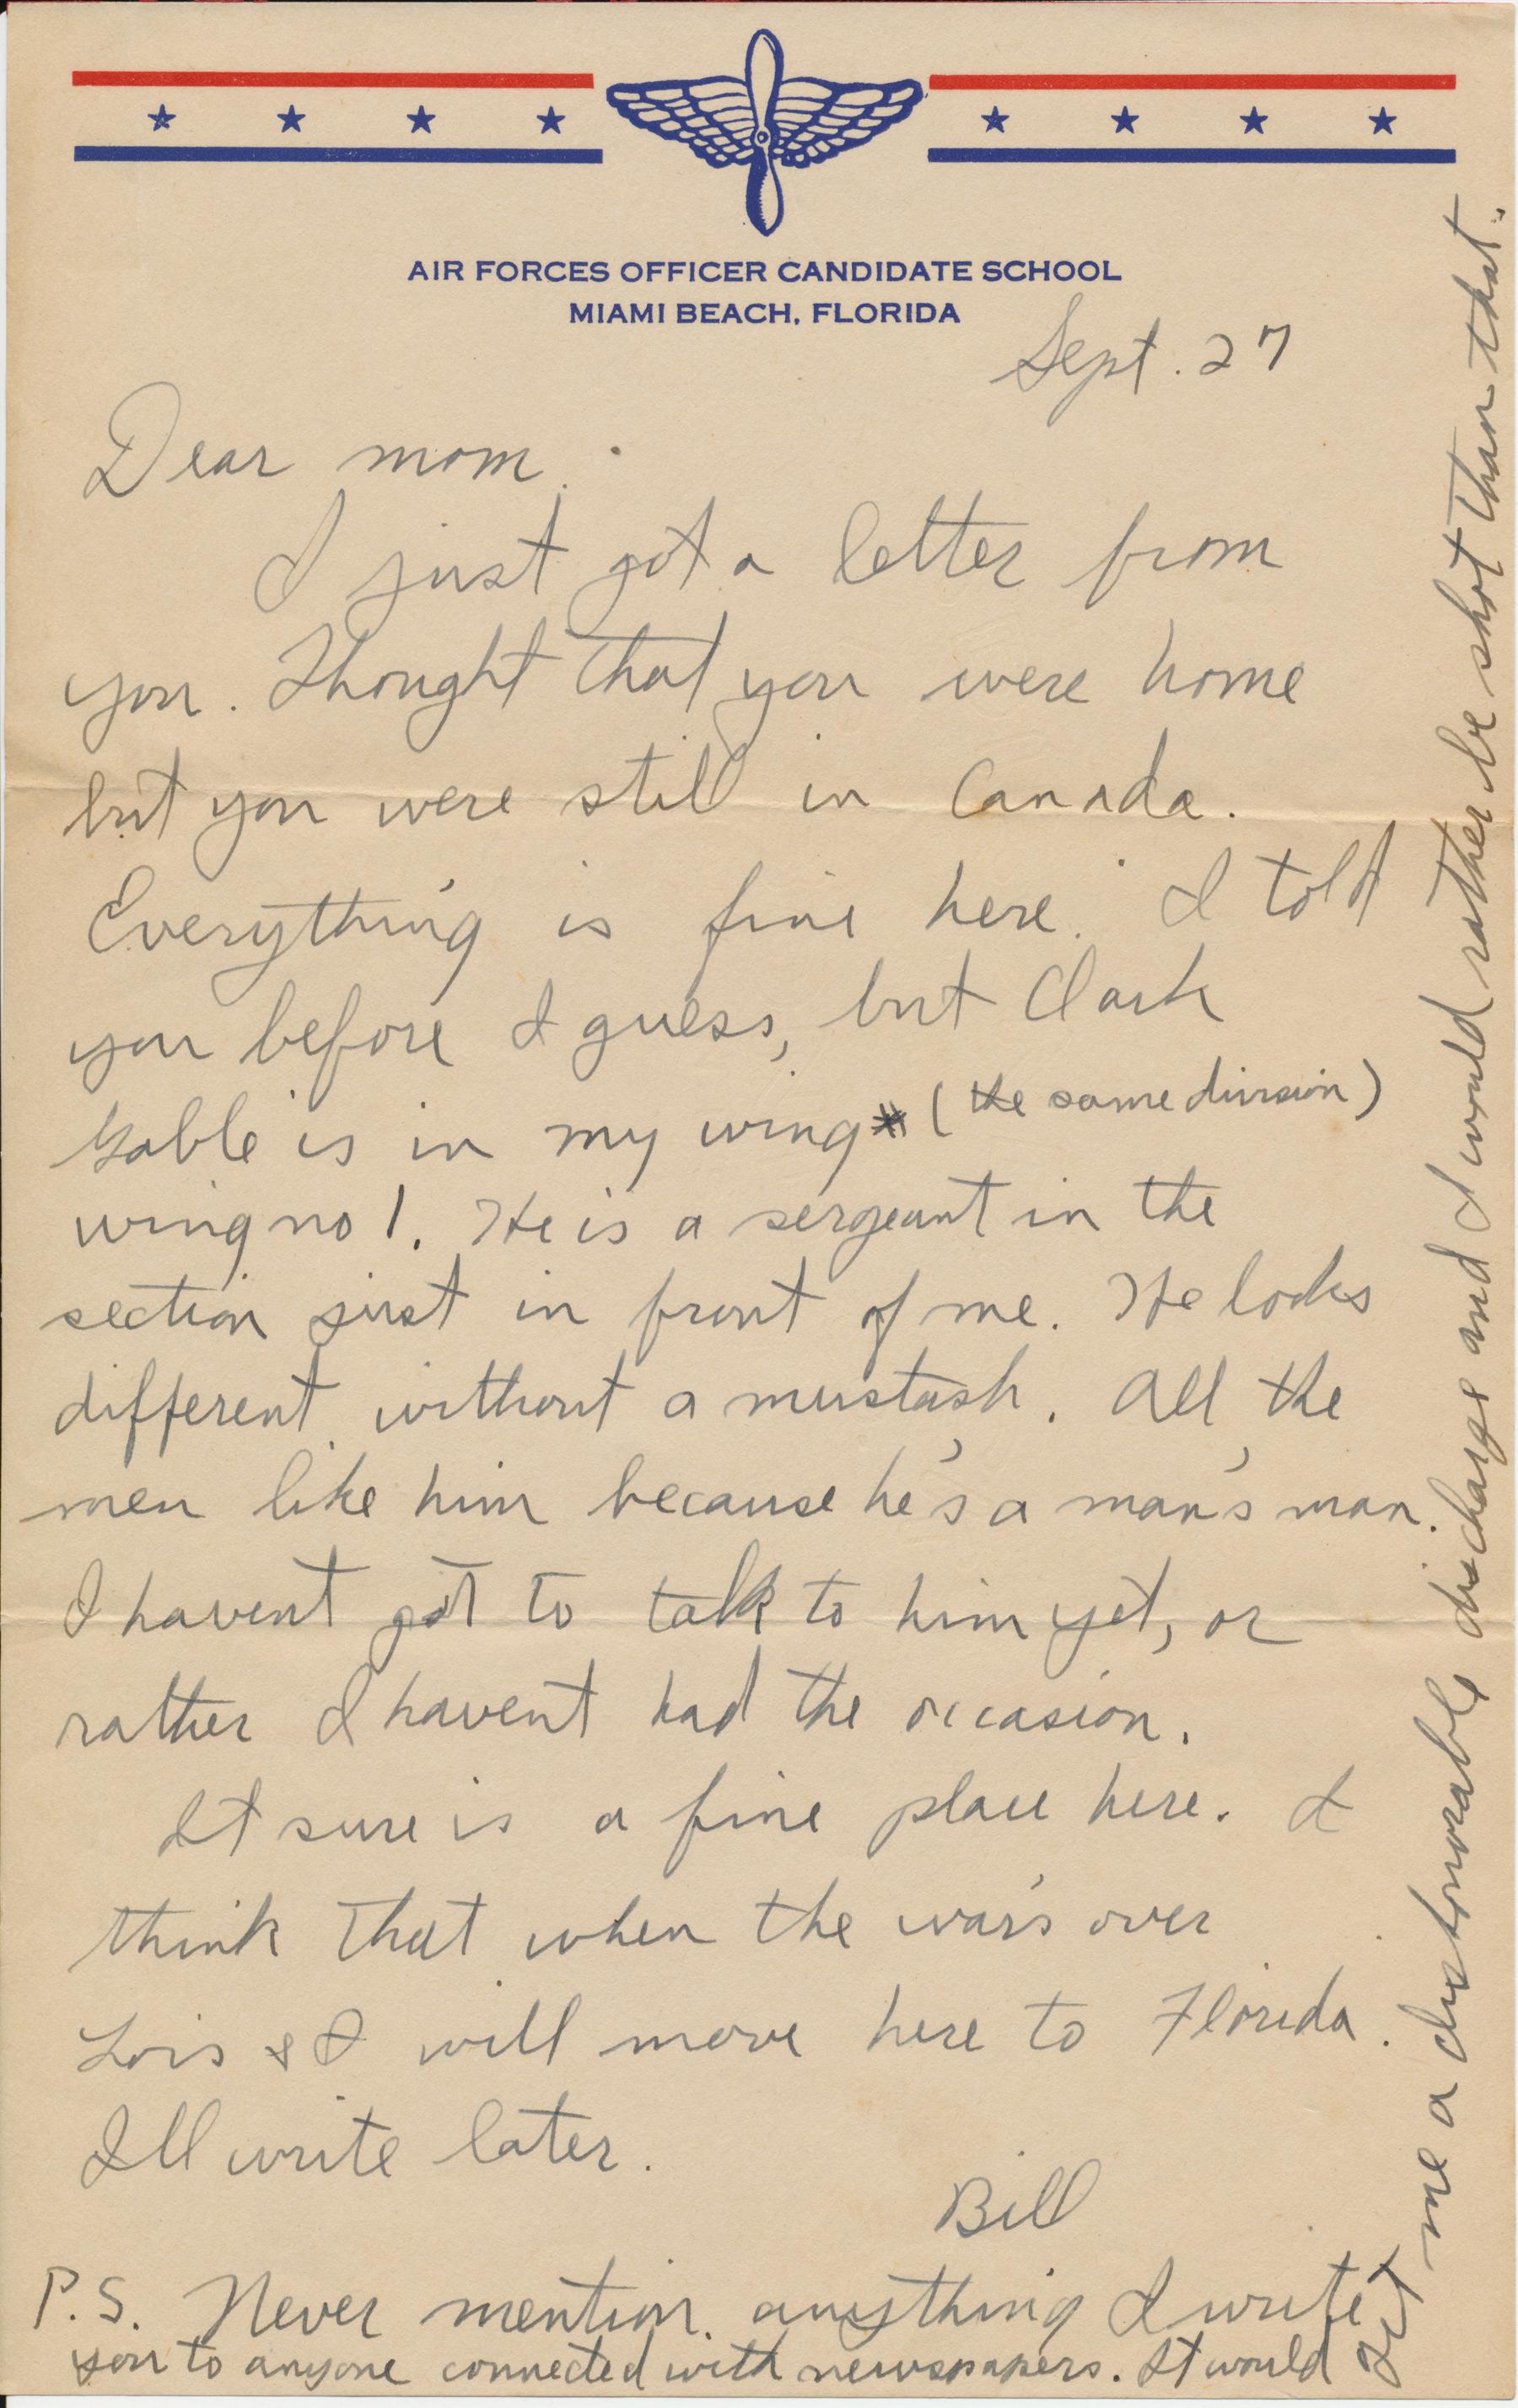 AIR FORCES OFFICER CANDIDATE SCHOOL
MIAMI BEACH, FLORIDA
Sept. 27
Dear mom.
I just got a letter from
you. Thought that you were home
but you were still in Canada.
Everything is fine here. I told
you before I guess, but Clark
Gable is in my wing* (the same division)
wing no 1. He is a sergeant in the
section just in front of me. He looks
different without a mustash. All the
men like him because he's a man's man.
I havent got to talk to him yet, or
rather I havent had the occasion.
It sure is a fine place here. I
think that when the war's over
Lois & I will move here to Florida.
I'll write later.
Bill
P.S. Never mention anything I write
you to anyone connected with newspapers. It would
get me a dishonorable discharge and I would rather be shot than that.